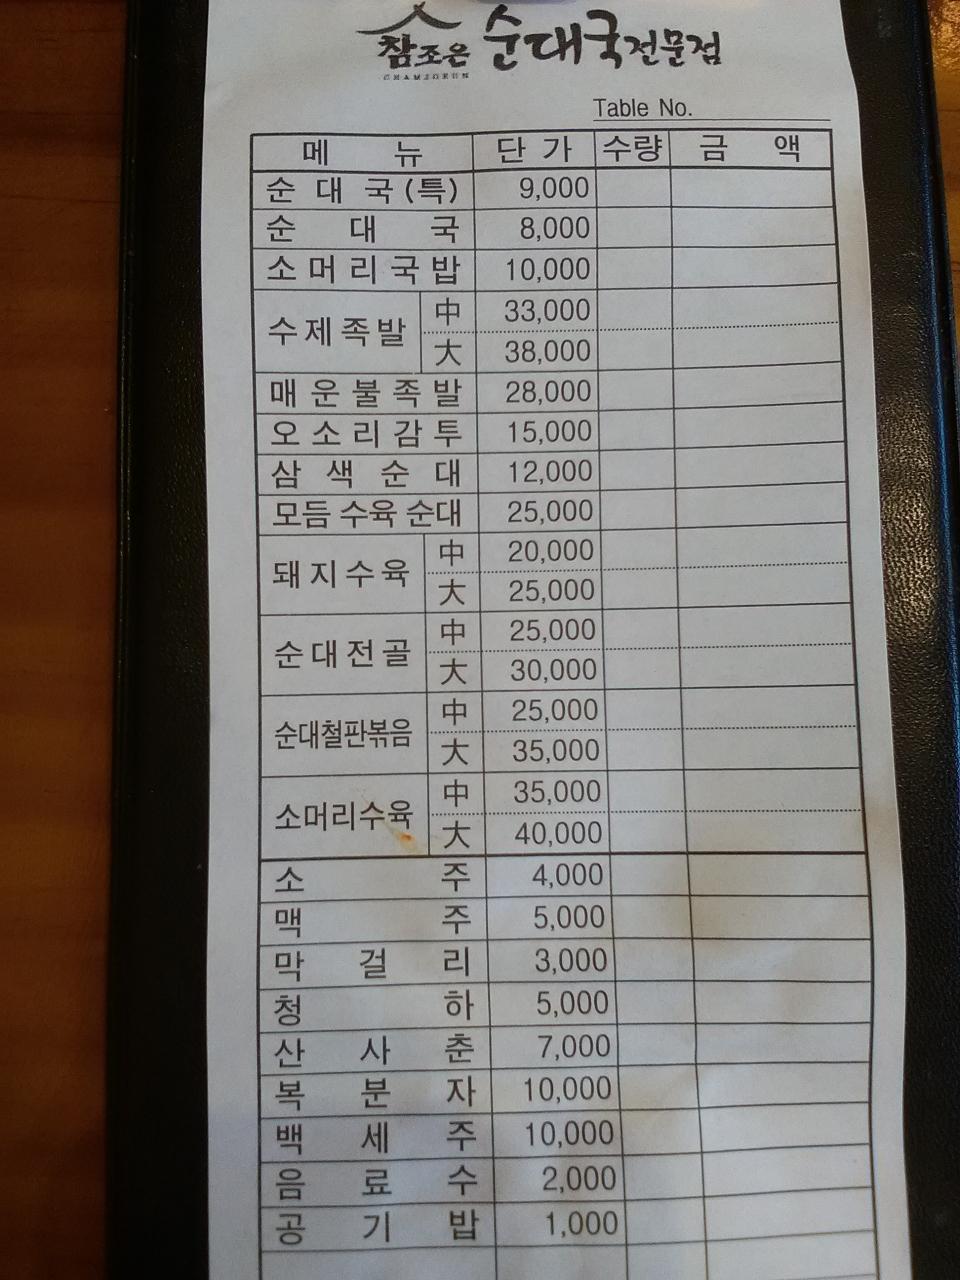 참조은 순대국전문점
CHAMJOEUN
Table No.
메 뉴 단 가 수량 금 액
순 대 국 (특) 9,000
순 대 국 8,000
소 머 리 국 밥 10,000
수 제 족 발 中 33,000
大 38,000
매 운 불 족 발 28,000
오 소 리 감 투 15,000
삼 색 순 대 12,000
모듬 수육 순대 25,000
돼 지 수 육 中 20,000
大 25,000
순 대 전 골 中 25,000
大 30,000
순대철판볶음 中 25,000
大 35,000
소머리수육 中 35,000
大 40,000
소 주 4,000
맥 주 5,000
막 걸 리 3,000
청 하 5,000
산 사 춘 7,000
복 분 자 10,000
백 세 주 10,000
음 료 수 2,000
공 기 밥 1,000